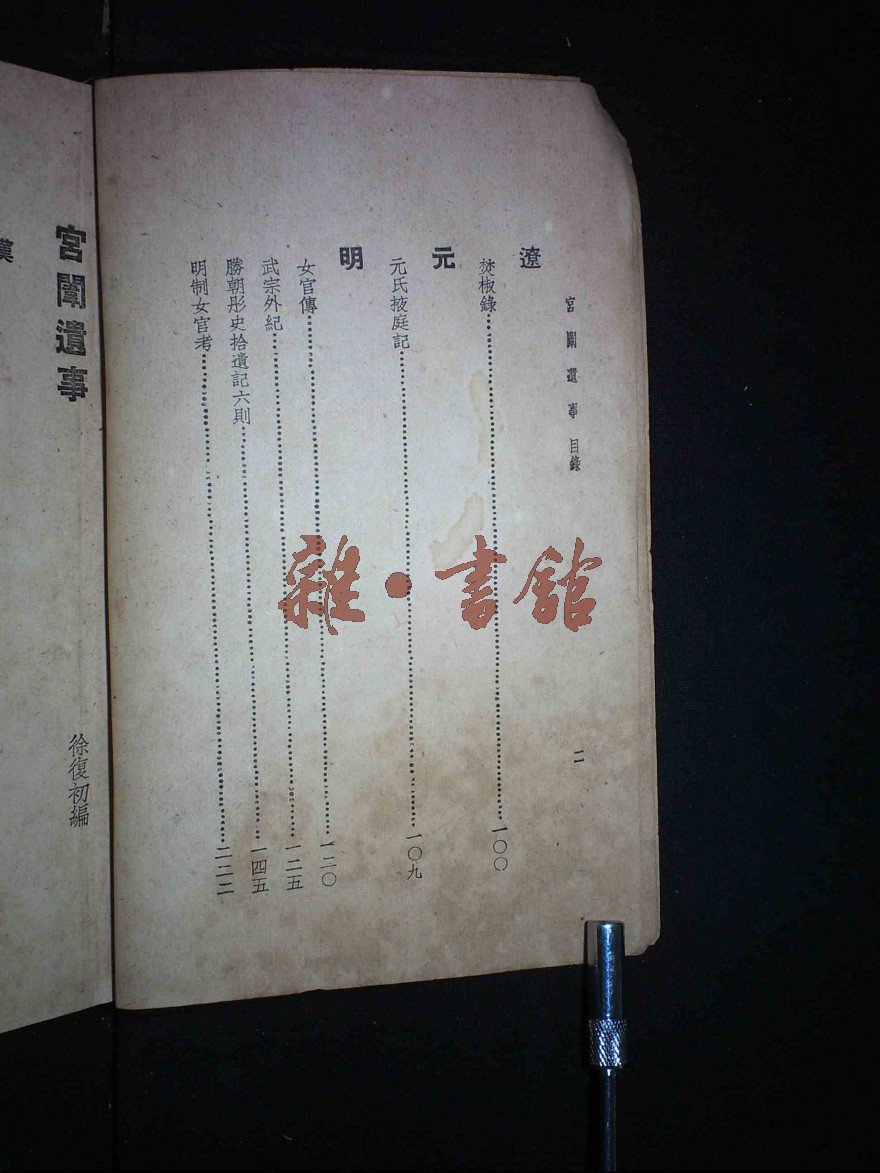 宮闈遺事 目錄
二
遼
焚椒錄 一〇〇
元
元氏掖庭記 一〇九
明
女官傳 一二〇
武宗外紀 一二五
勝朝彤史拾遺記六則 一四五
明制女官考 二二二
宮闈遺事
徐復初編
漢
雜·書館